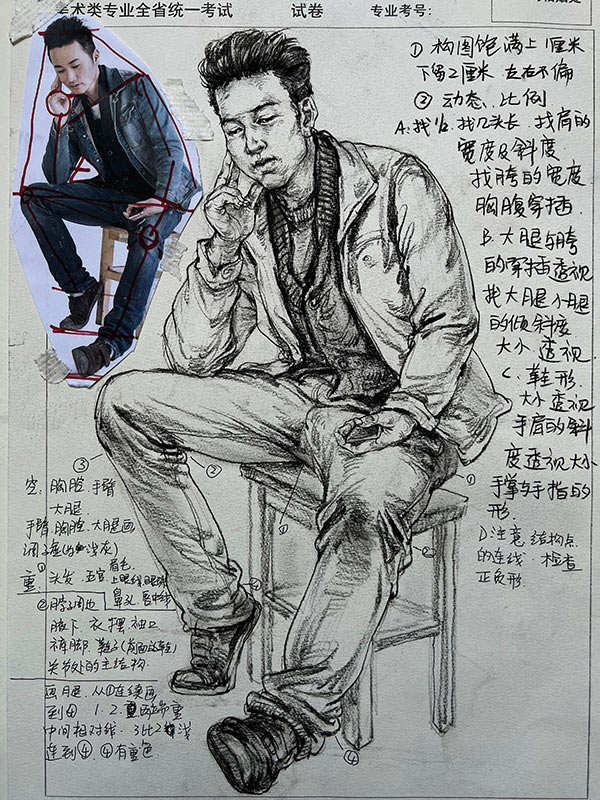 美术类专业全省统一考试 试卷 专业考号:
① 构图饱满上1厘米
下留2厘米 左右不偏
② 动态、比例
A.找½.找几头长 找肩的
宽度及斜度
找胯的宽度
胸腹穿插
B.大腿与胯
的穿插透视
找大腿小腿
的倾斜度
大小 透视
C.鞋形.
大小透视
手肩的斜
度透视大小
手掌与手指的
形.
D注意结构点
的连线.检查
正负形.
③
②
①
②
①
④
④
空:胸腔.手臂
大腿.
手臂.胸腔.大腿画
重:①头发.五官.眉毛.
上眼线眼球
鼻孔.唇中线
②脖子周边
腋下.衣摆.袖口
裤脚.鞋子
关节处的主结构.
画腿.从①连续画
到④ 1.2.重两端重
中间相对线.3比2浅
连到④.④有重色